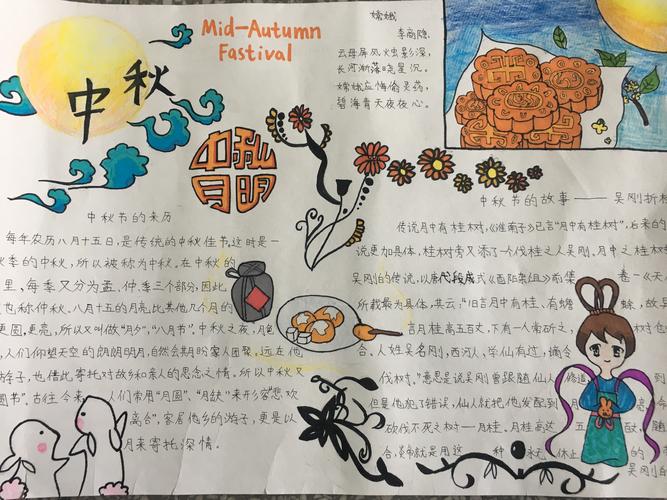 中秋
Mid-Autumn
Fastival
嫦娥
李商隐
云母屏风烛影深,
长河渐落晓星沉。
嫦娥应悔偷灵药,
碧海青天夜夜心。
中秋
月明
中秋节的来历
每年农历八月十五日,是传统的中秋佳节。这时是一
秋季的中秋,所以被称为中秋。在中秋的
里,每季又分为孟、仲、季三个部分,因此
也称仲秋。八月十五的月亮比其他几个月的
更圆,更亮,所以又叫做"月夕","八月节"。中秋之夜,月色
,人们仰望天空的朗朗明月,自然会期盼家人团聚。远在他
游子,也借此寄托对故乡和亲人的思念之情。所以中秋又
圆节"。古往今来,人们常用"月圆"、"月缺"来形容"悲欢
离合",客居他乡的游子,更是以
月来寄托深情。
中秋节的故事——吴刚折桂
传说月中有桂树,《淮南子》已言"月中有桂树",后来的
说更加具体,桂树旁又添了一个伐桂之人吴刚。月中之桂树
吴刚的传说,以唐代段成式《酉阳杂俎》前集 卷一《天
所载最为具体,共云:"旧言月中有桂、有蟾 蜍,故异
言月桂高五百丈,下有一人常斫之, 树
合。人姓吴名刚,西河人,学仙有过,谪令
伐树。"意思是说吴刚曾跟随仙人 修道
但是他犯了错误,仙人就把他发配到 月
砍伐不死之树——月桂。月桂高达 五 随
合,就是用这 种 永 休止 的
吴刚的